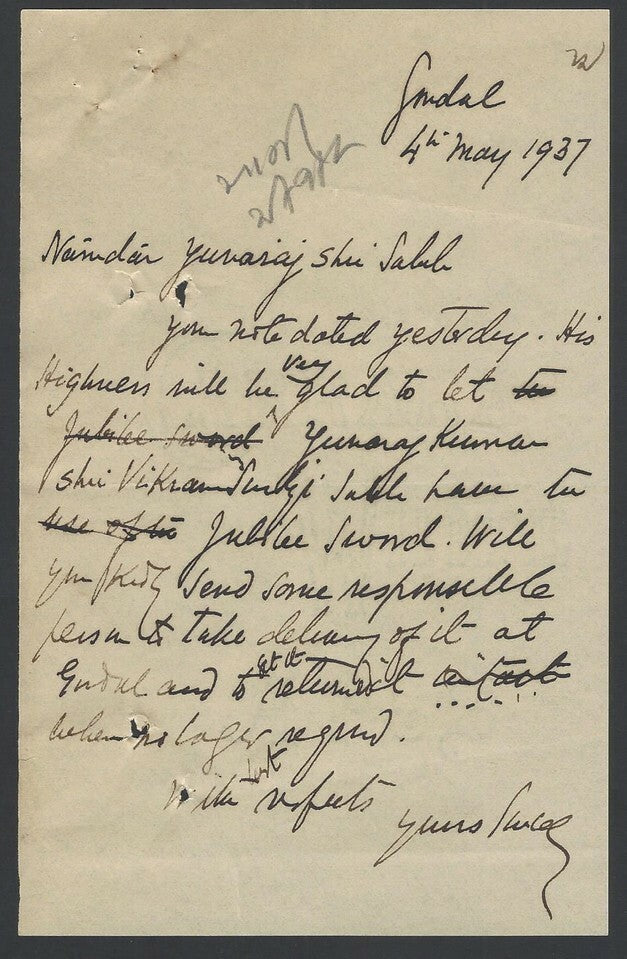 Gondal
4th May 1937
Namdar Yuvaraj Shri Saheb
Your note dated yesterday. His
Highness will be very glad to let the
Jubilee Sword Yuvaraj Kumar
Shri Vikramsinhji Saheb have the
use of the Jubilee Sword. Will
you kindly send some responsible
person to take delivery of it at
Gondal and to get it returned intact
when no longer required.
With best respects
Yours Sincely